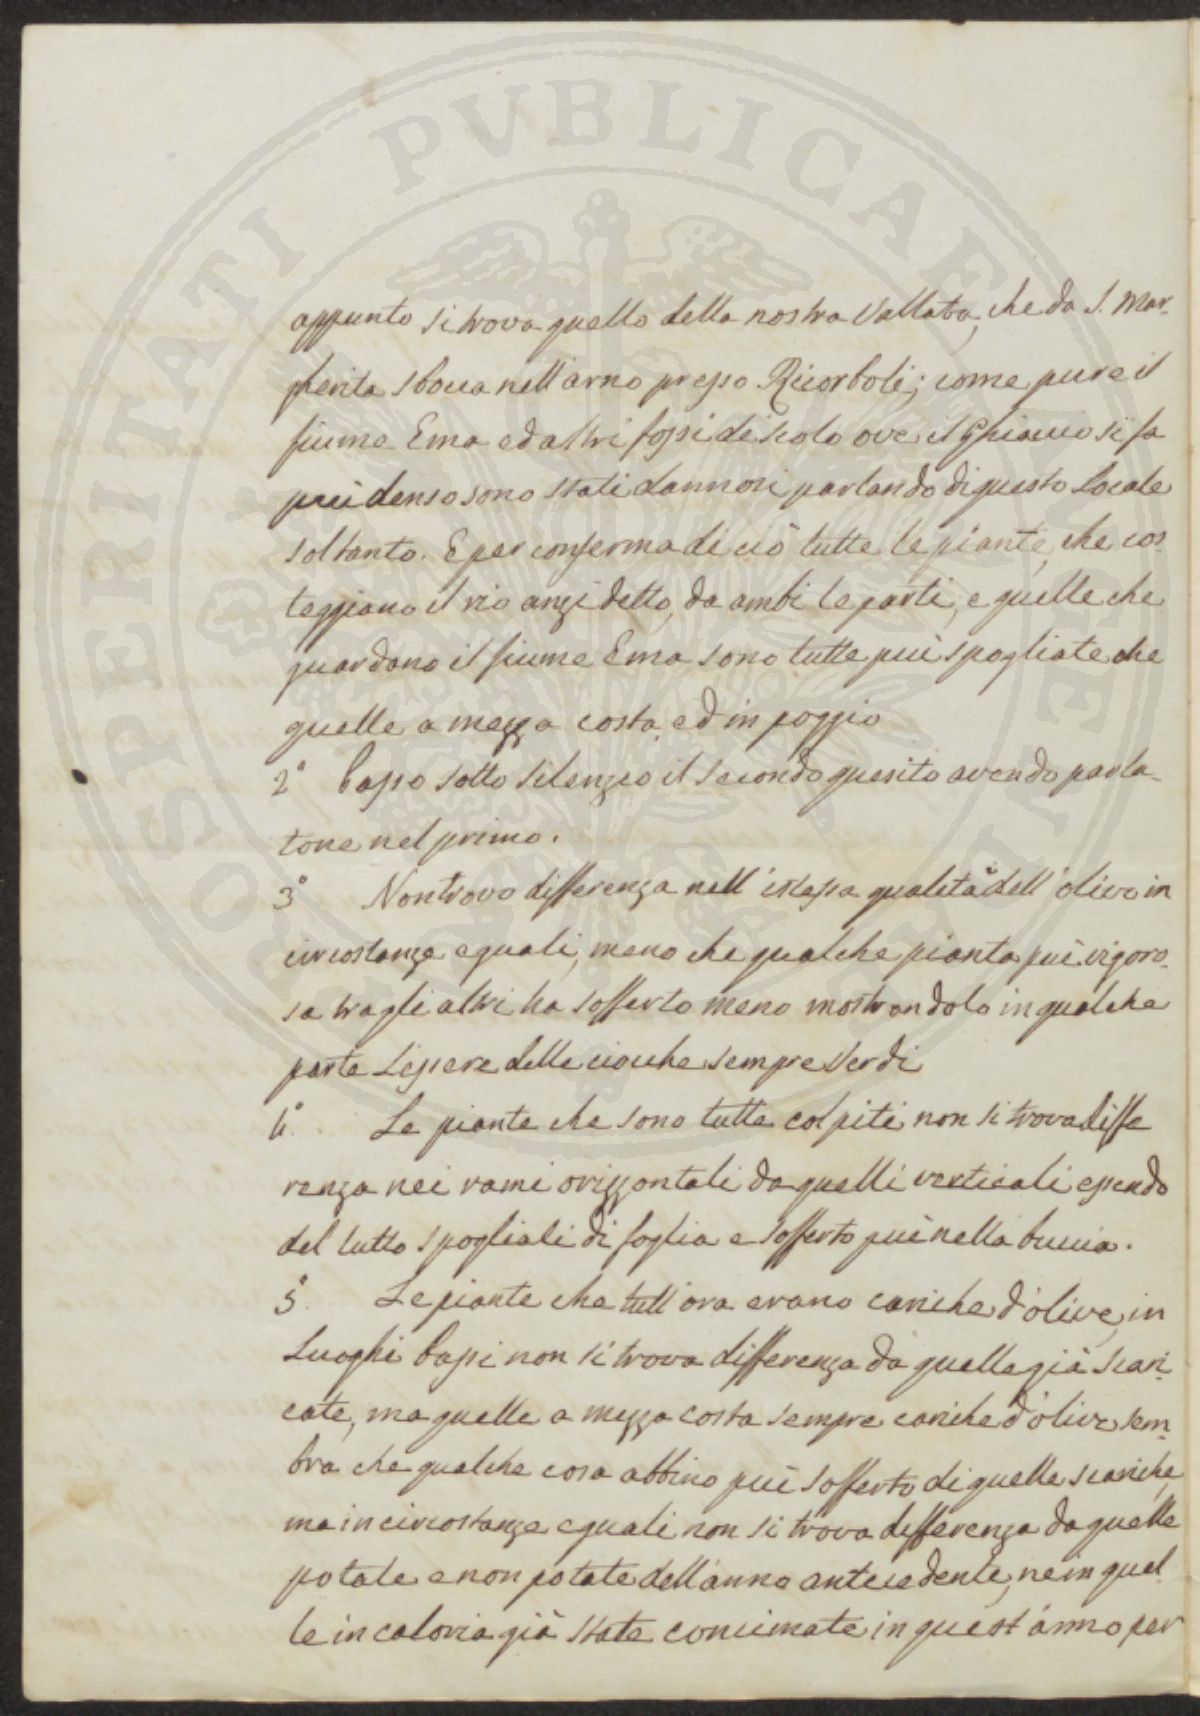 PROSPERITATI PVBLICAE AVGENDAE
appunto si trova quello della nostra Vallata, che da S. Mar-
gherita sbocca nell'arno presso Ricorboli; come pure il
fiume Ema ed altri fossi di scolo ove il Ghiaccio si fa
più denso sono stati dannosi parlando di questo Locale
soltanto. E per conferma di ciò tutte le piante, che cos-
teggiano il rio anzi detto, da ambi le parti, e quelle che
guardano il fiume Ema sono tutte più spogliate che
quelle a mezza costa, ed in poggio
2° Passo sotto silenzio il secondo quesito avendo parla-
tone nel primo.
3° Non trovo differenza nell'istessa qualità dell'olivo in
circostanze eguali, meno che qualche pianta più vigoro-
sa tra gli altri ha sofferto meno mostrandolo in qualche
parte L'essere delle ciocche sempre Verdi
4° Le piante che sono tutte colpiti non si trova diffe
renza nei rami orizzontali da quelli verticali essendo
del tutto spogliati di foglia e sofferto più nella buccia.
5° Le piante che tutt'ora erano cariche d'olive, in
Luoghi bassi non si trova differenza da quelle già scari-
cate, ma quelle a mezza costa sempre cariche d'olive sem-
bra che qualche cosa abbino più sofferto di quelle scariche,
ma in circostanze eguali non si trova differenza da quelle
potate e non potate dell'anno antecedente, ne in quel-
le in caloria già state concimate in quest'anno per